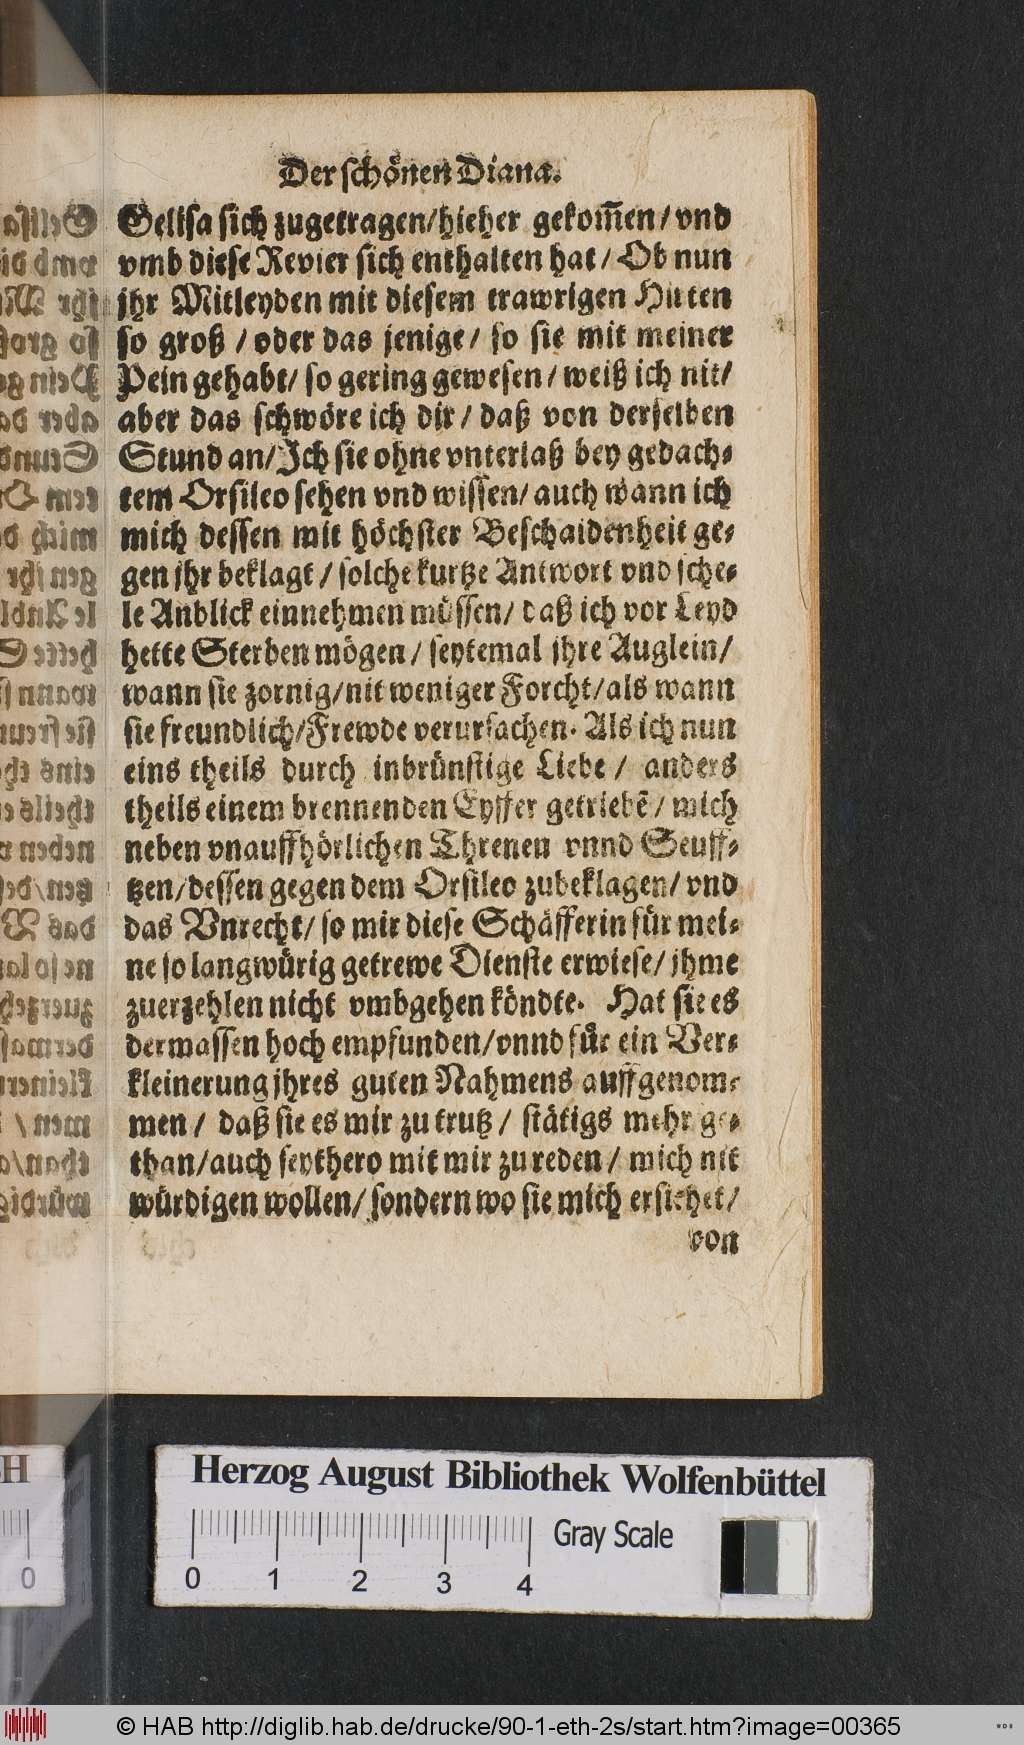 Der schönen Diana.
Selisa sich zugetragen/hieher gekom̃en/vnd
vmb diese Revier sich enthalten hat/Ob nun
jhr Mitleyden mit diesem trawrigen Hirten
so groß/oder das jenige/so sie mit meiner
Pein gehabt/so gering gewesen/weiß ich nit/
aber das schwöre ich dir/daß von derselben
Stund an/Ich sie ohne vnterlaß bey gedach-
tem Orsileo sehen vnd wissen/auch wann ich
mich dessen mit höchster Beschaidenheit ge-
gen jhr beklagt/solche kurtze Antwort vnd sche-
le Anblick einnehmen müssen/daß ich vor Leyd
hette Sterben mögen/seytemal jhre Auglein/
wann sie zornig/nit weniger Forcht/als wann
sie freundlich/Frewde verursachen. Als ich nun
eins theils durch inbrünstige Liebe/ anders
theils einem brennenden Eyffer getriebē/mich
neben vnauffhörlichen Threnen vnnd Seuff-
tzen/dessen gegen dem Orsileo zubeklagen/vnd
das Vnrecht/so mir diese Schäfferin für mei-
ne so langwürig getrewe Dienste erwiese/jhme
zuerzehlen nicht vmbgehen köndte. Hat sie es
dermassen hoch empfunden/vnnd für ein Ver-
kleinerung jhres guten Nahmens auffgenom-
men/ daß sie es mir zu trutz/ stätigs mehr ge-
than/auch seythero mit mir zu reden/mich nit
würdigen wollen/sondern wo sie mich ersiehet/
von
Herzog August Bibliothek Wolfenbüttel
Gray Scale
0 1 2 3 4
H
0
© HAB http://diglib.hab.de/drucke/90-1-eth-2s/start.htm?image=00365